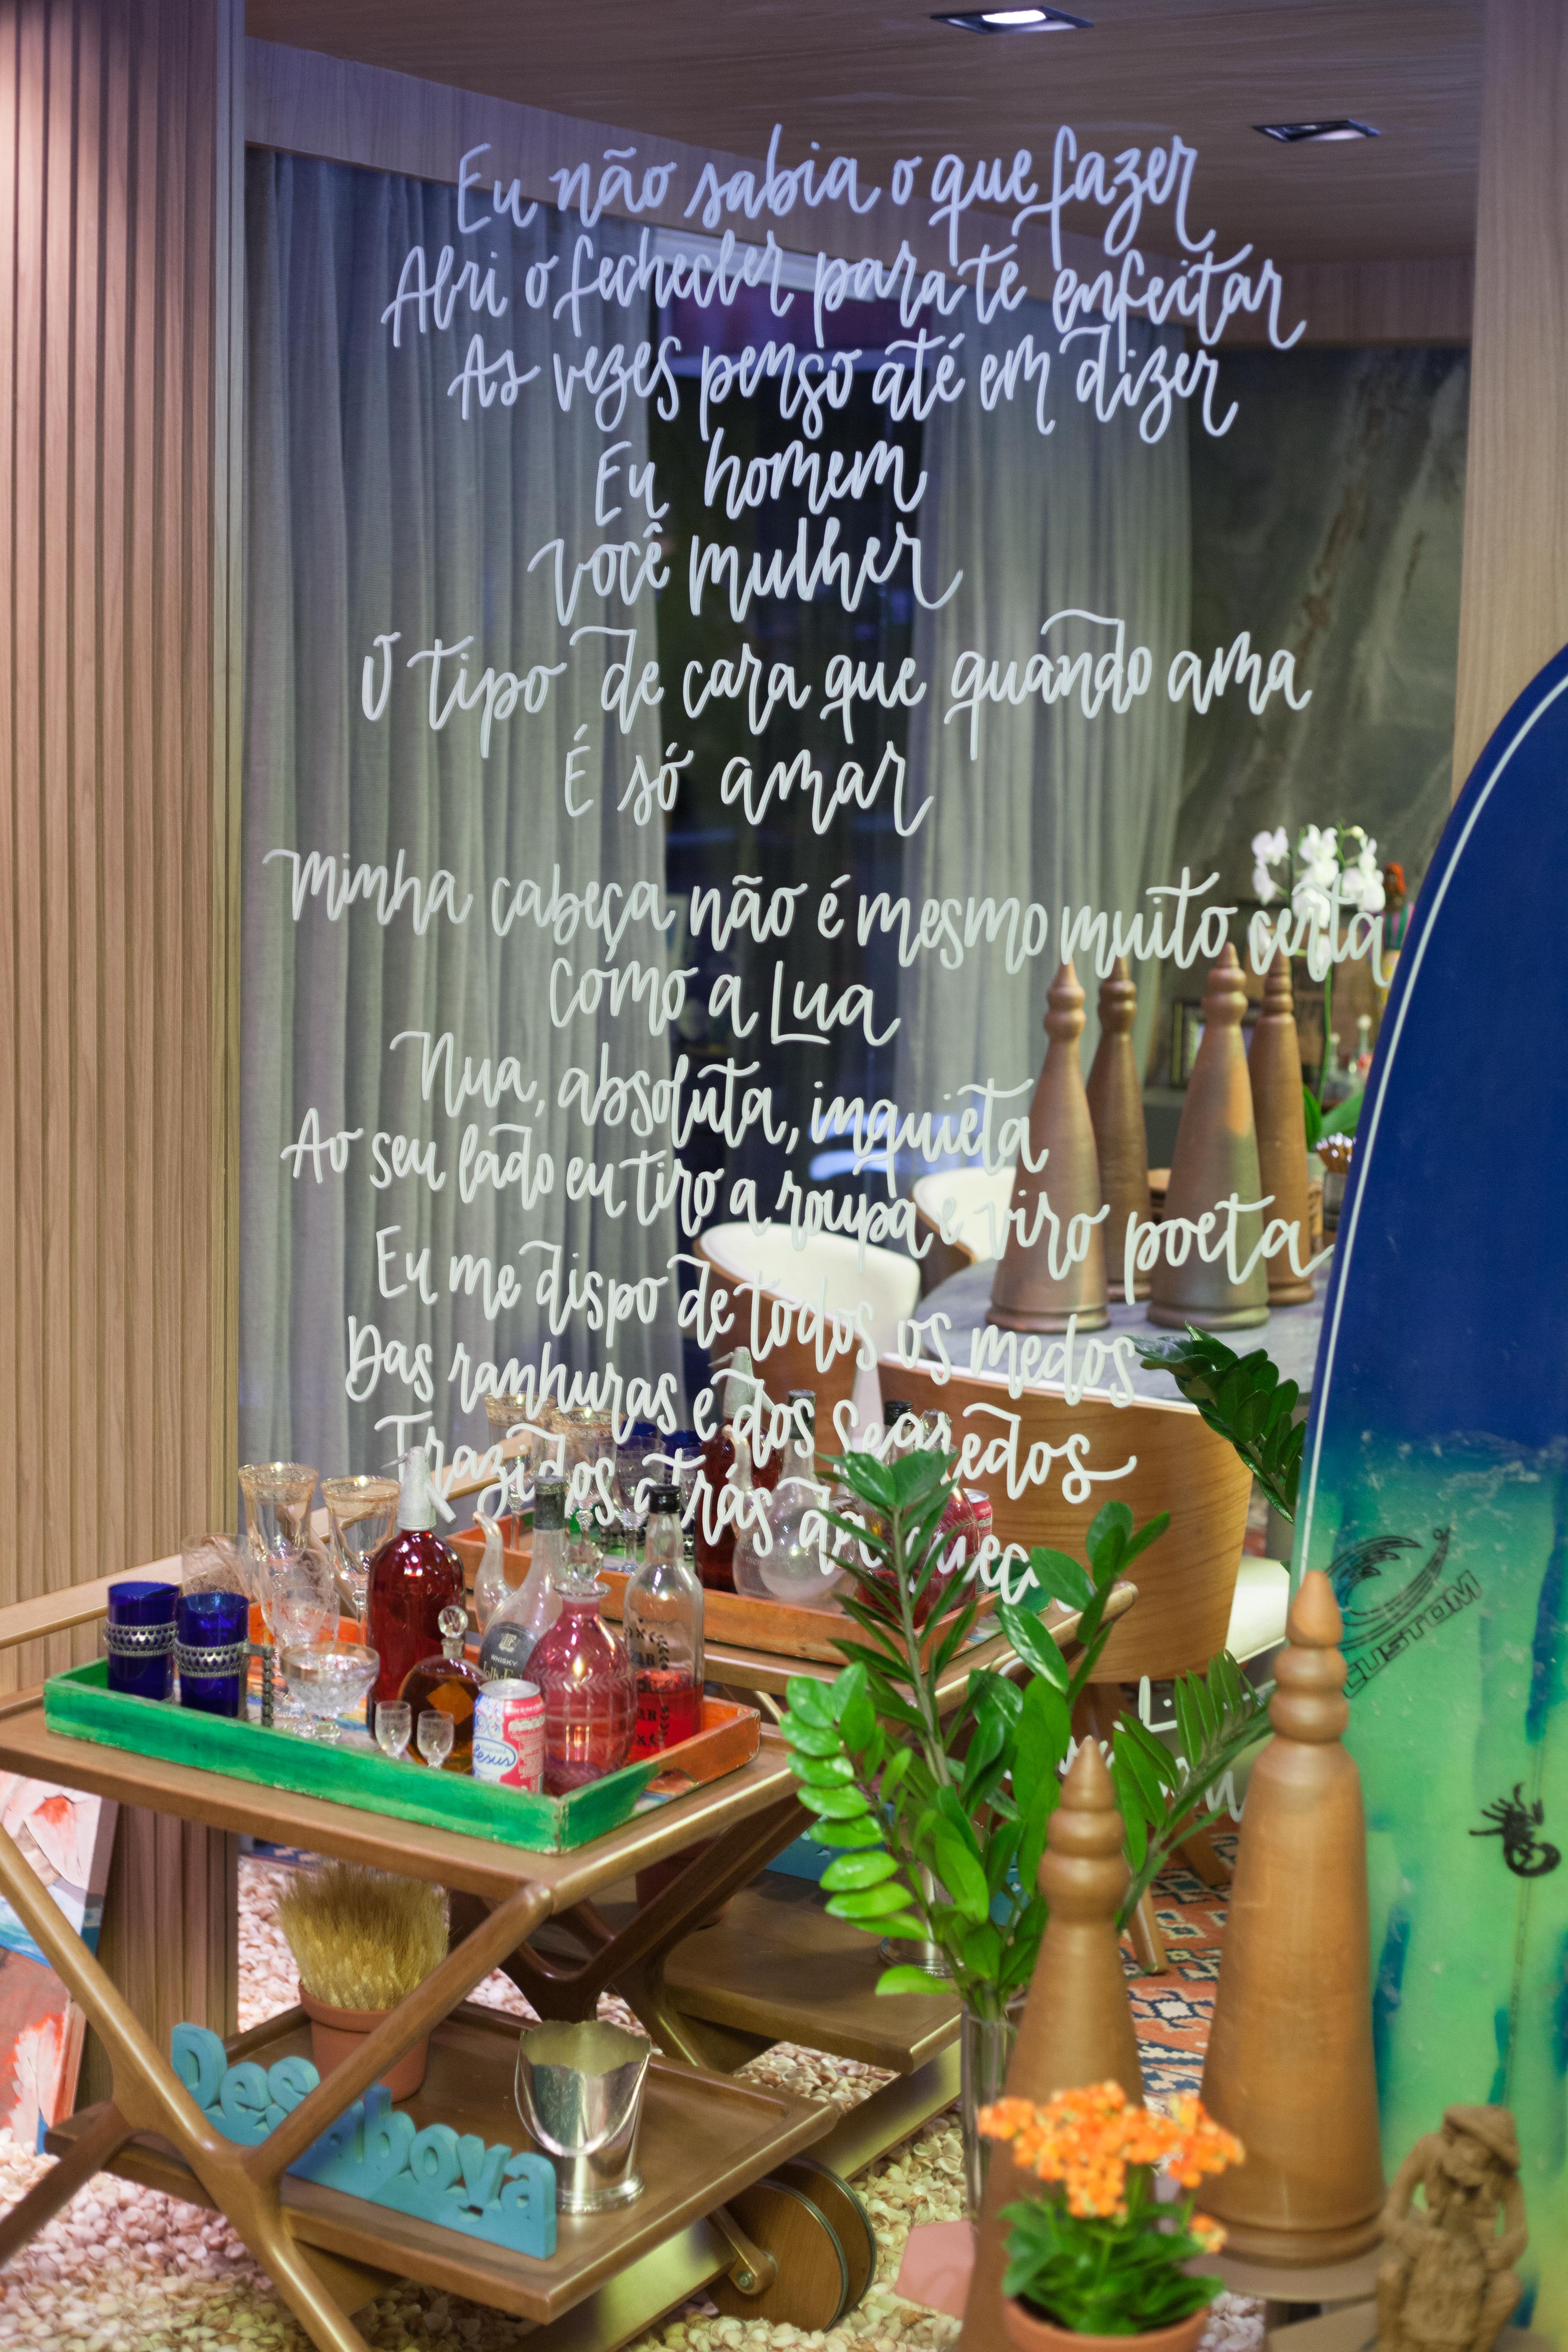 Eu não sabia o que fazer
Abri o fechecler para te enfeitar
As vezes penso até em dizer
Eu homem
você mulher
O tipo de cara que quando ama
É só amar
Minha cabeça não é mesmo muito certa
como a Lua
Nua, absoluta, inquieta
Ao seu lado eu tiro a roupa e viro poeta
Eu me dispo de todos os medos
Das ranhuras e dos segredos
Trazidos atrás da
WHISKY
Jesus
CUSTOM